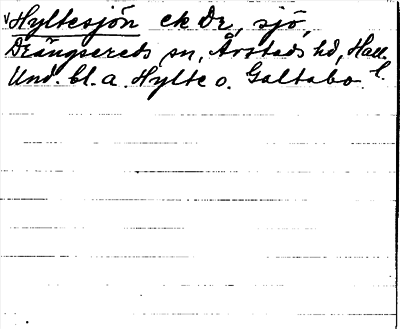 Hyltesjön ek Dr, sjö,
Drängsereds sn, Årstads hd, Hall.
Und. bl. a. Hylte o. Galtabo l.